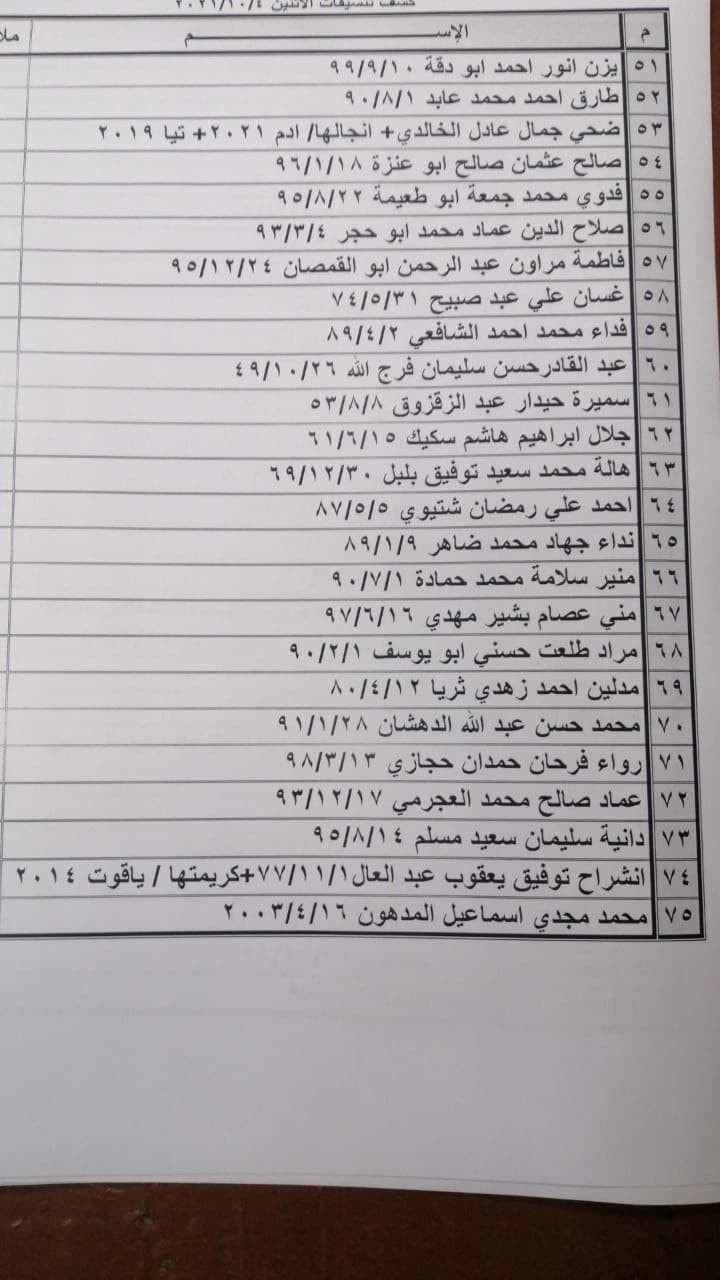 كشف تنسيقات الاثنين ٢٠٢١/١٠/٤
م الإســـــــــم ملا
٥١ يزن انور احمد ابو دقة ٩٩/٩/١٠
٥٢ طارق احمد محمد عابد ٩٠/٨/١
٥٣ ضحي جمال عادل الخالدي+ انجالها/ ادم ٢٠٢١+ تيا ٢٠١٩
٥٤ صالح عثمان صالح ابو عنزة ٩٦/١/١٨
٥٥ فدوي محمد جمعة ابو طعيمة ٩٥/٨/٢٢
٥٦ صلاح الدين عماد محمد ابو حجر ٩٣/٣/٤
٥٧ فاطمة مراون عبد الرحمن ابو القمصان ٩٥/١٢/٢٤
٥٨ غسان علي عبد صبيح ٧٤/٥/٣١
٥٩ فداء محمد احمد الشافعي ٨٩/٤/٢
٦٠ عبد القادرحسن سليمان فرج الله ٤٩/١٠/٢٦
٦١ سميرة حيدار عبد الزقزوق ٥٣/٨/٨
٦٢ جلال ابراهيم هاشم سكيك ٦١/٦/١٥
٦٣ هالة محمد سعيد توفيق بلبل ٦٩/١٢/٣٠
٦٤ احمد علي رمضان شتيوي ٨٧/٥/٥
٦٥ نداء جهاد محمد ضاهر ٨٩/١/٩
٦٦ منير سلامة محمد حمادة ٩٠/٧/١
٦٧ مني عصام بشير مهدي ٩٧/٦/١٦
٦٨ مراد طلعت حسني ابو يوسف ٩٠/٢/١
٦٩ مدلين احمد زهدي ثريا ٨٠/٤/١٢
٧٠ محمد حسن عبد الله الدهشان ٩١/١/٢٨
٧١ رواء فرحان حمدان حجازي ٩٨/٣/١٣
٧٢ عماد صالح محمد العجرمي ٩٣/١٢/١٧
٧٣ دانية سليمان سعيد مسلم ٩٥/٨/١٤
٧٤ انشراح توفيق يعقوب عبد العال٧٧/١١/١+كريمتها / ياقوت ٢٠١٤
٧٥ محمد مجدي اسماعيل المدهون ٢٠٠٣/٤/١٦